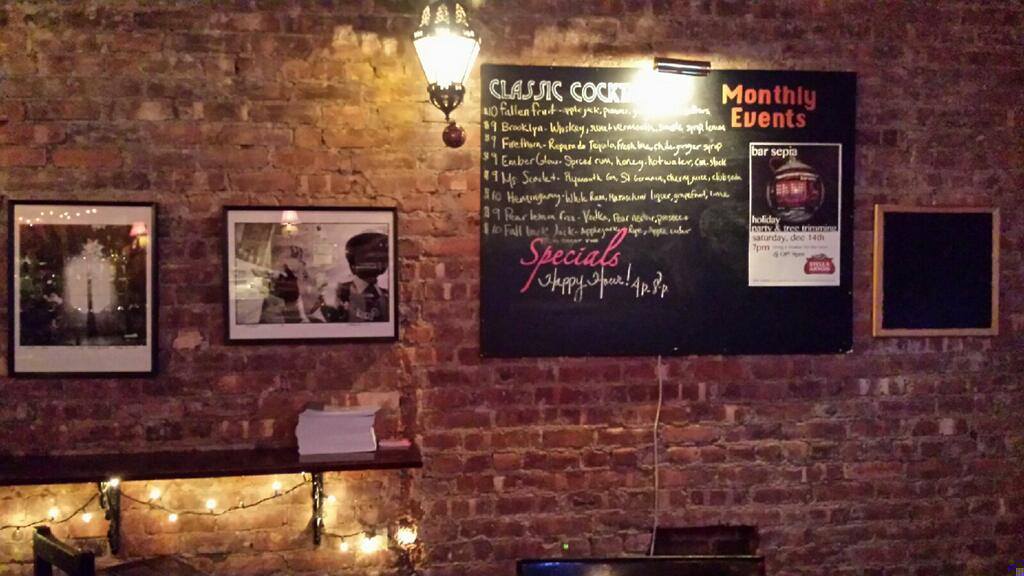 CLASSIC
$10 Fallen Fruit - applejack,
$9 Brooklyn - Whiskey, sweet vermouth, simple syrup, lemon
$9 Firethorn - Reposado Tequila, fresh lime, chile-ginger syrup
$9 Ember Glow - Spiced rum, honey, hot water,
$9 Ms. Scarlet - Plymouth Gin, St Germain, cherry juice, club soda
$10 Hemingway - White Rum, Maraschino liquor, grapefruit, lime
$9 Pear - Vodka, Pear nectar, prosecco
$10 Fall back Jack - Applejack, Rye, Apple cider
Specials
Happy Hour! 4p-8p
Monthly
Events
bar sepia
holiday
party & tree trimming
saturday, dec 14th
7pm
STELLA
ARTOIS